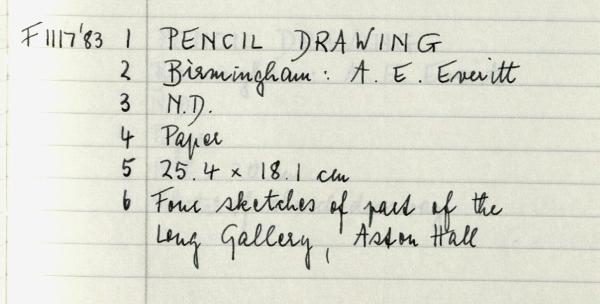 F1117'83 1 PENCIL DRAWING
2 Birmingham: A. E. Everitt
3 N.D.
4 Paper
5 25.4 x 18.1 cm
6 Four sketches of part of the
Long Gallery, Aston Hall